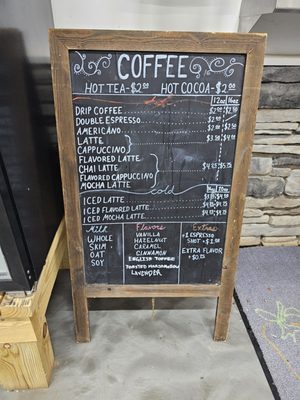 COFFEE
HOT TEA-$2.00 HOT COCOA-$2.00
Hot 12oz 16oz
DRIP COFFEE
DOUBLE ESPRESSO
AMERICANO
LATTE
CAPPUCCINO
FLAVORED LATTE
CHAI LATTE $4.75 $5.75
FLAVORED CAPPUCCINO
MOCHA LATTE
Cold
ICED LATTE
ICED FLAVORED LATTE
ICED MOCHA LATTE
Milk
WHOLE
SKIM
OAT
SOY
Flavors
VANILLA
HAZELNUT
CARAMEL
CINNAMON
ENGLISH TOFFEE
TOASTED MARSHMALLOW
LAVENDER
Extras
+1 ESPRESSO
SHOT - $1.00
EXTRA FLAVOR